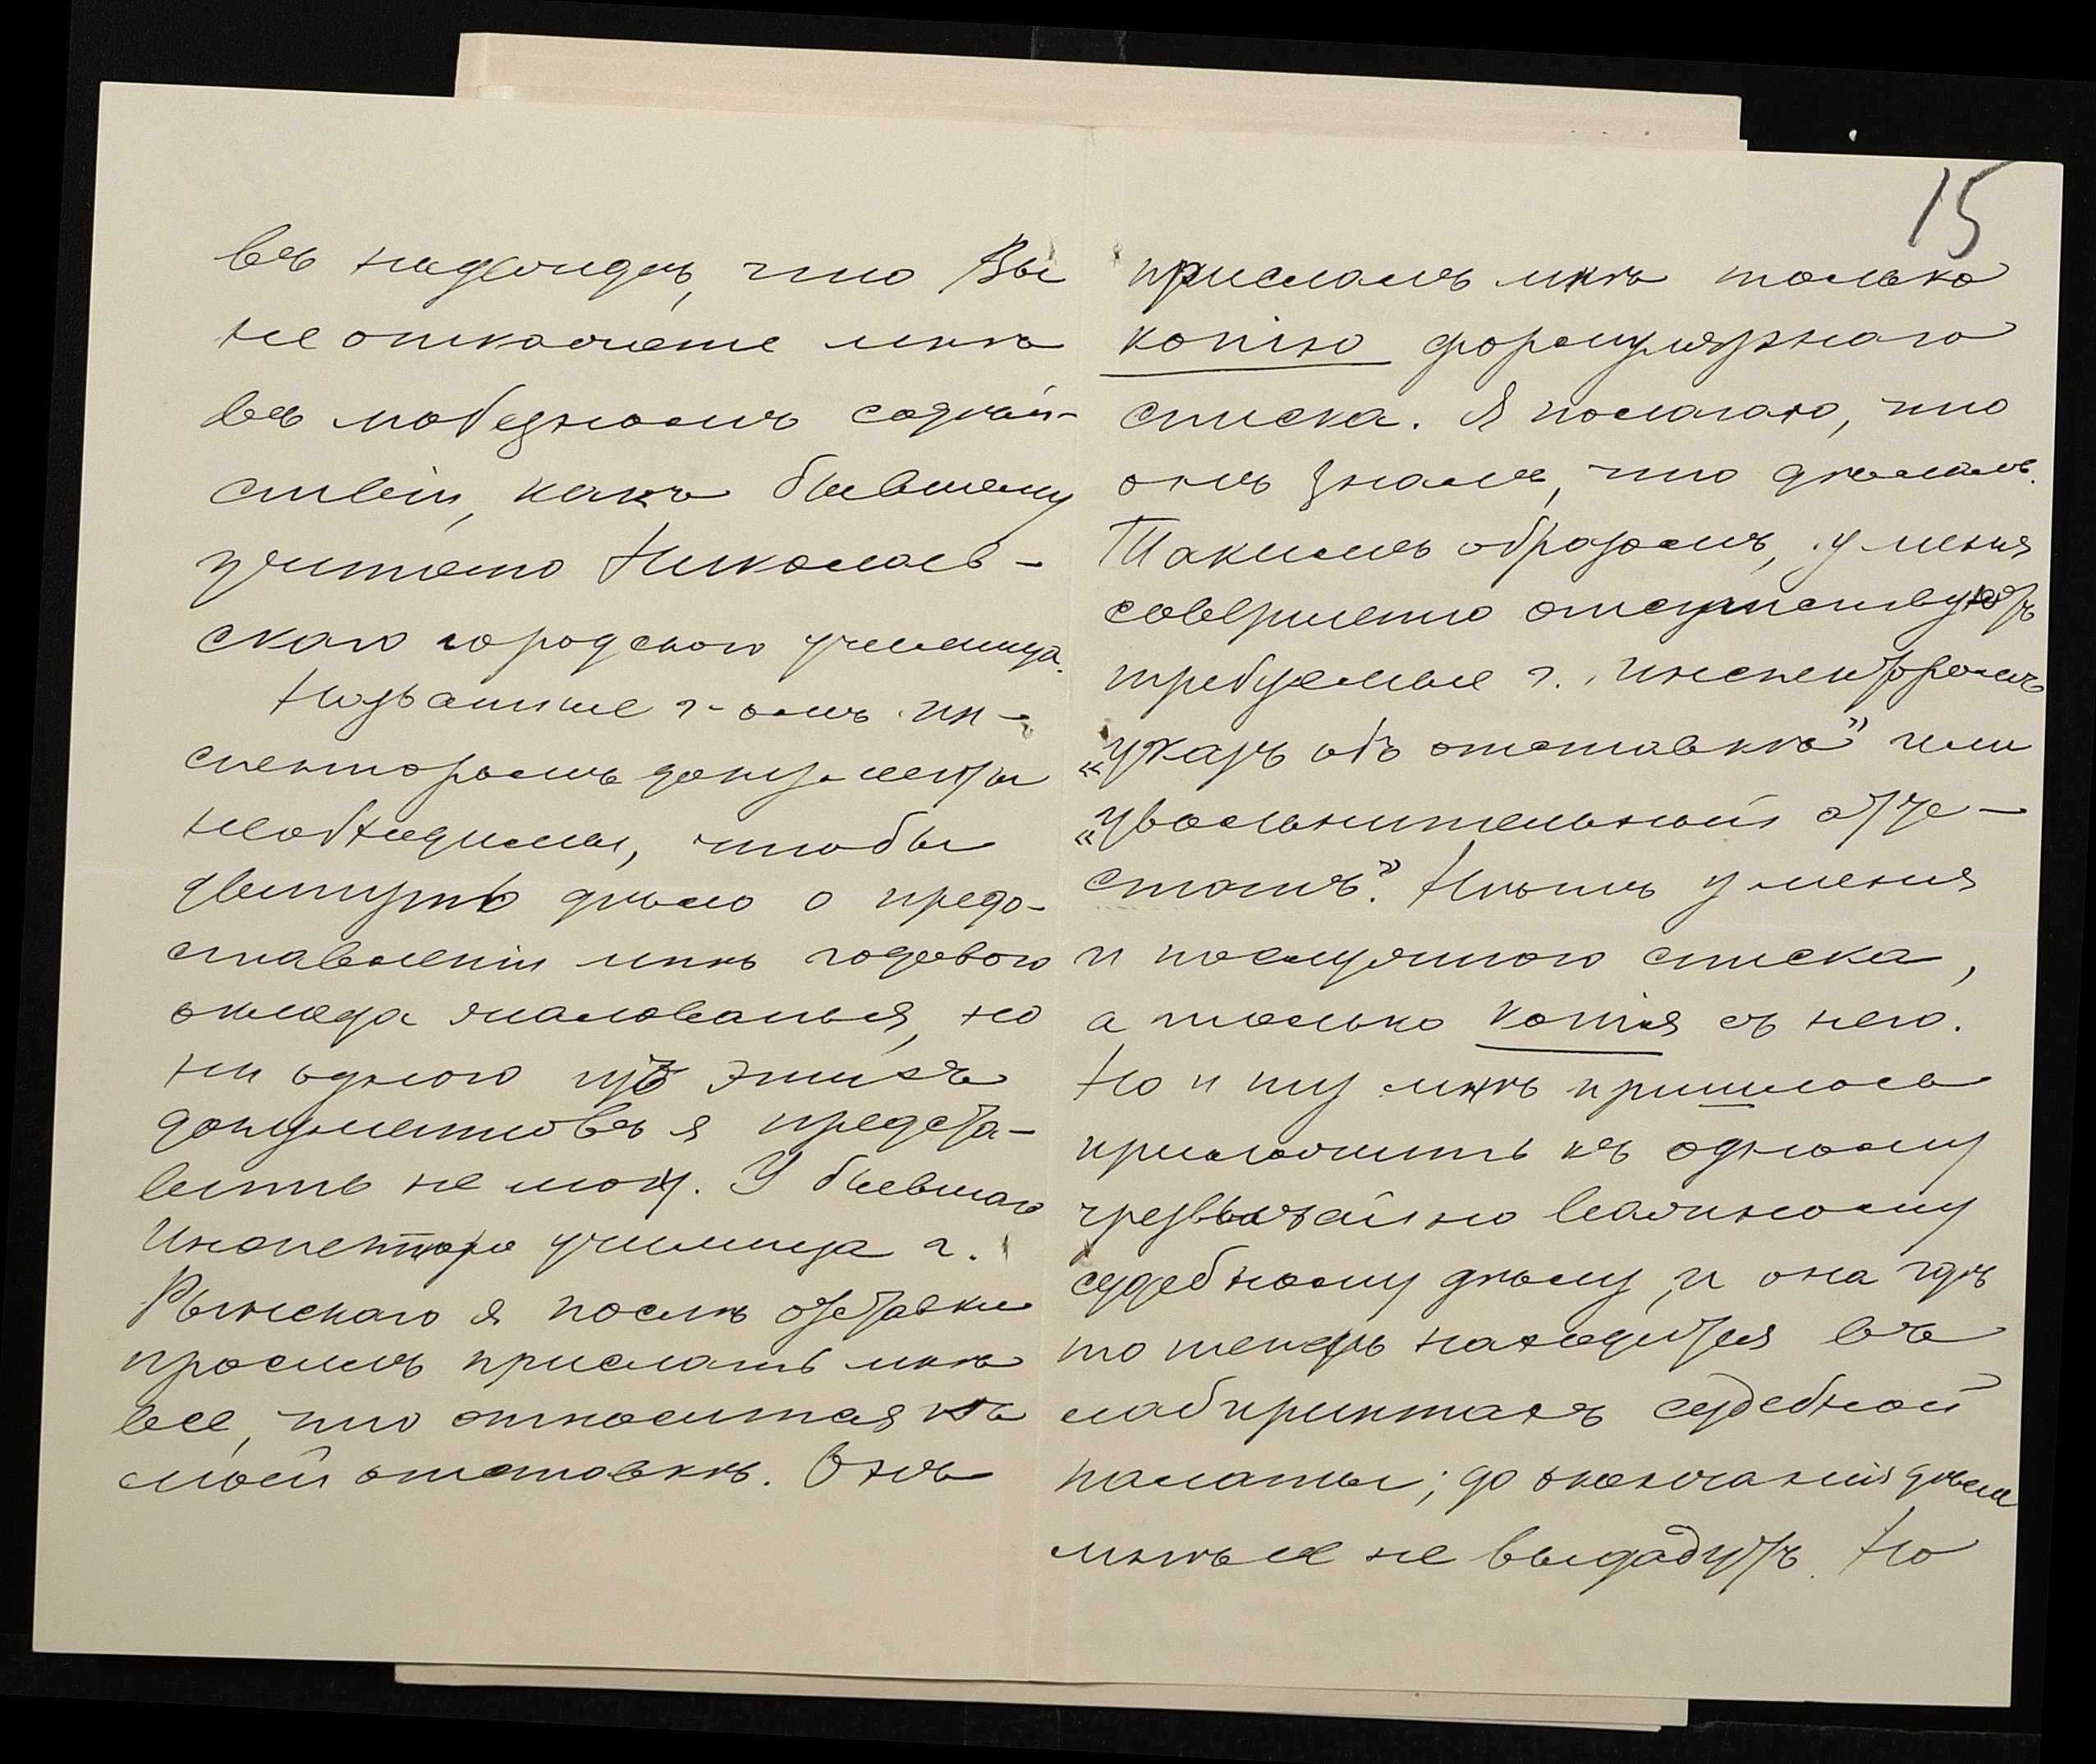 въ надеждѣ, что Вы
не откажете мнѣ
въ любезномъ содѣй-
ствіи, какъ бывшему
учителю Николаев-
скаго городского училища.
Названные г-омъ ин-
спекторомъ документы
необходимы, чтобы
двинуть дѣло о предо-
ставленіи мнѣ годового
оклада жалованья, но
ни одного изъ этихъ
документовъ я предста-
вить не могу. У бывшаго
Инспектора училища г.
Рынскаго я послѣ отставки
просилъ прислать мнѣ
все, что относится къ
моей отставкѣ. Онъ
15
прислалъ мнѣ только
копію формулярнаго
списка. Я полагаю, что
онъ зналъ, что дѣлалъ.
Такимъ образомъ, у меня
совершенно отсутствуютъ
требуемые г. инспекторомъ
„указъ объ отставкѣ" или
„увольнительный атте-
статъ". Нѣтъ у меня
и послужного списка,
а только копія съ него.
Но и ту мнѣ пришлось
приложить къ одному
чрезвычайно важному
судебному дѣлу, и она гдѣ
то теперь находится въ
лабиринтахъ судебной
палаты; до окончанія дѣла
мнѣ ее не выдадутъ. Но